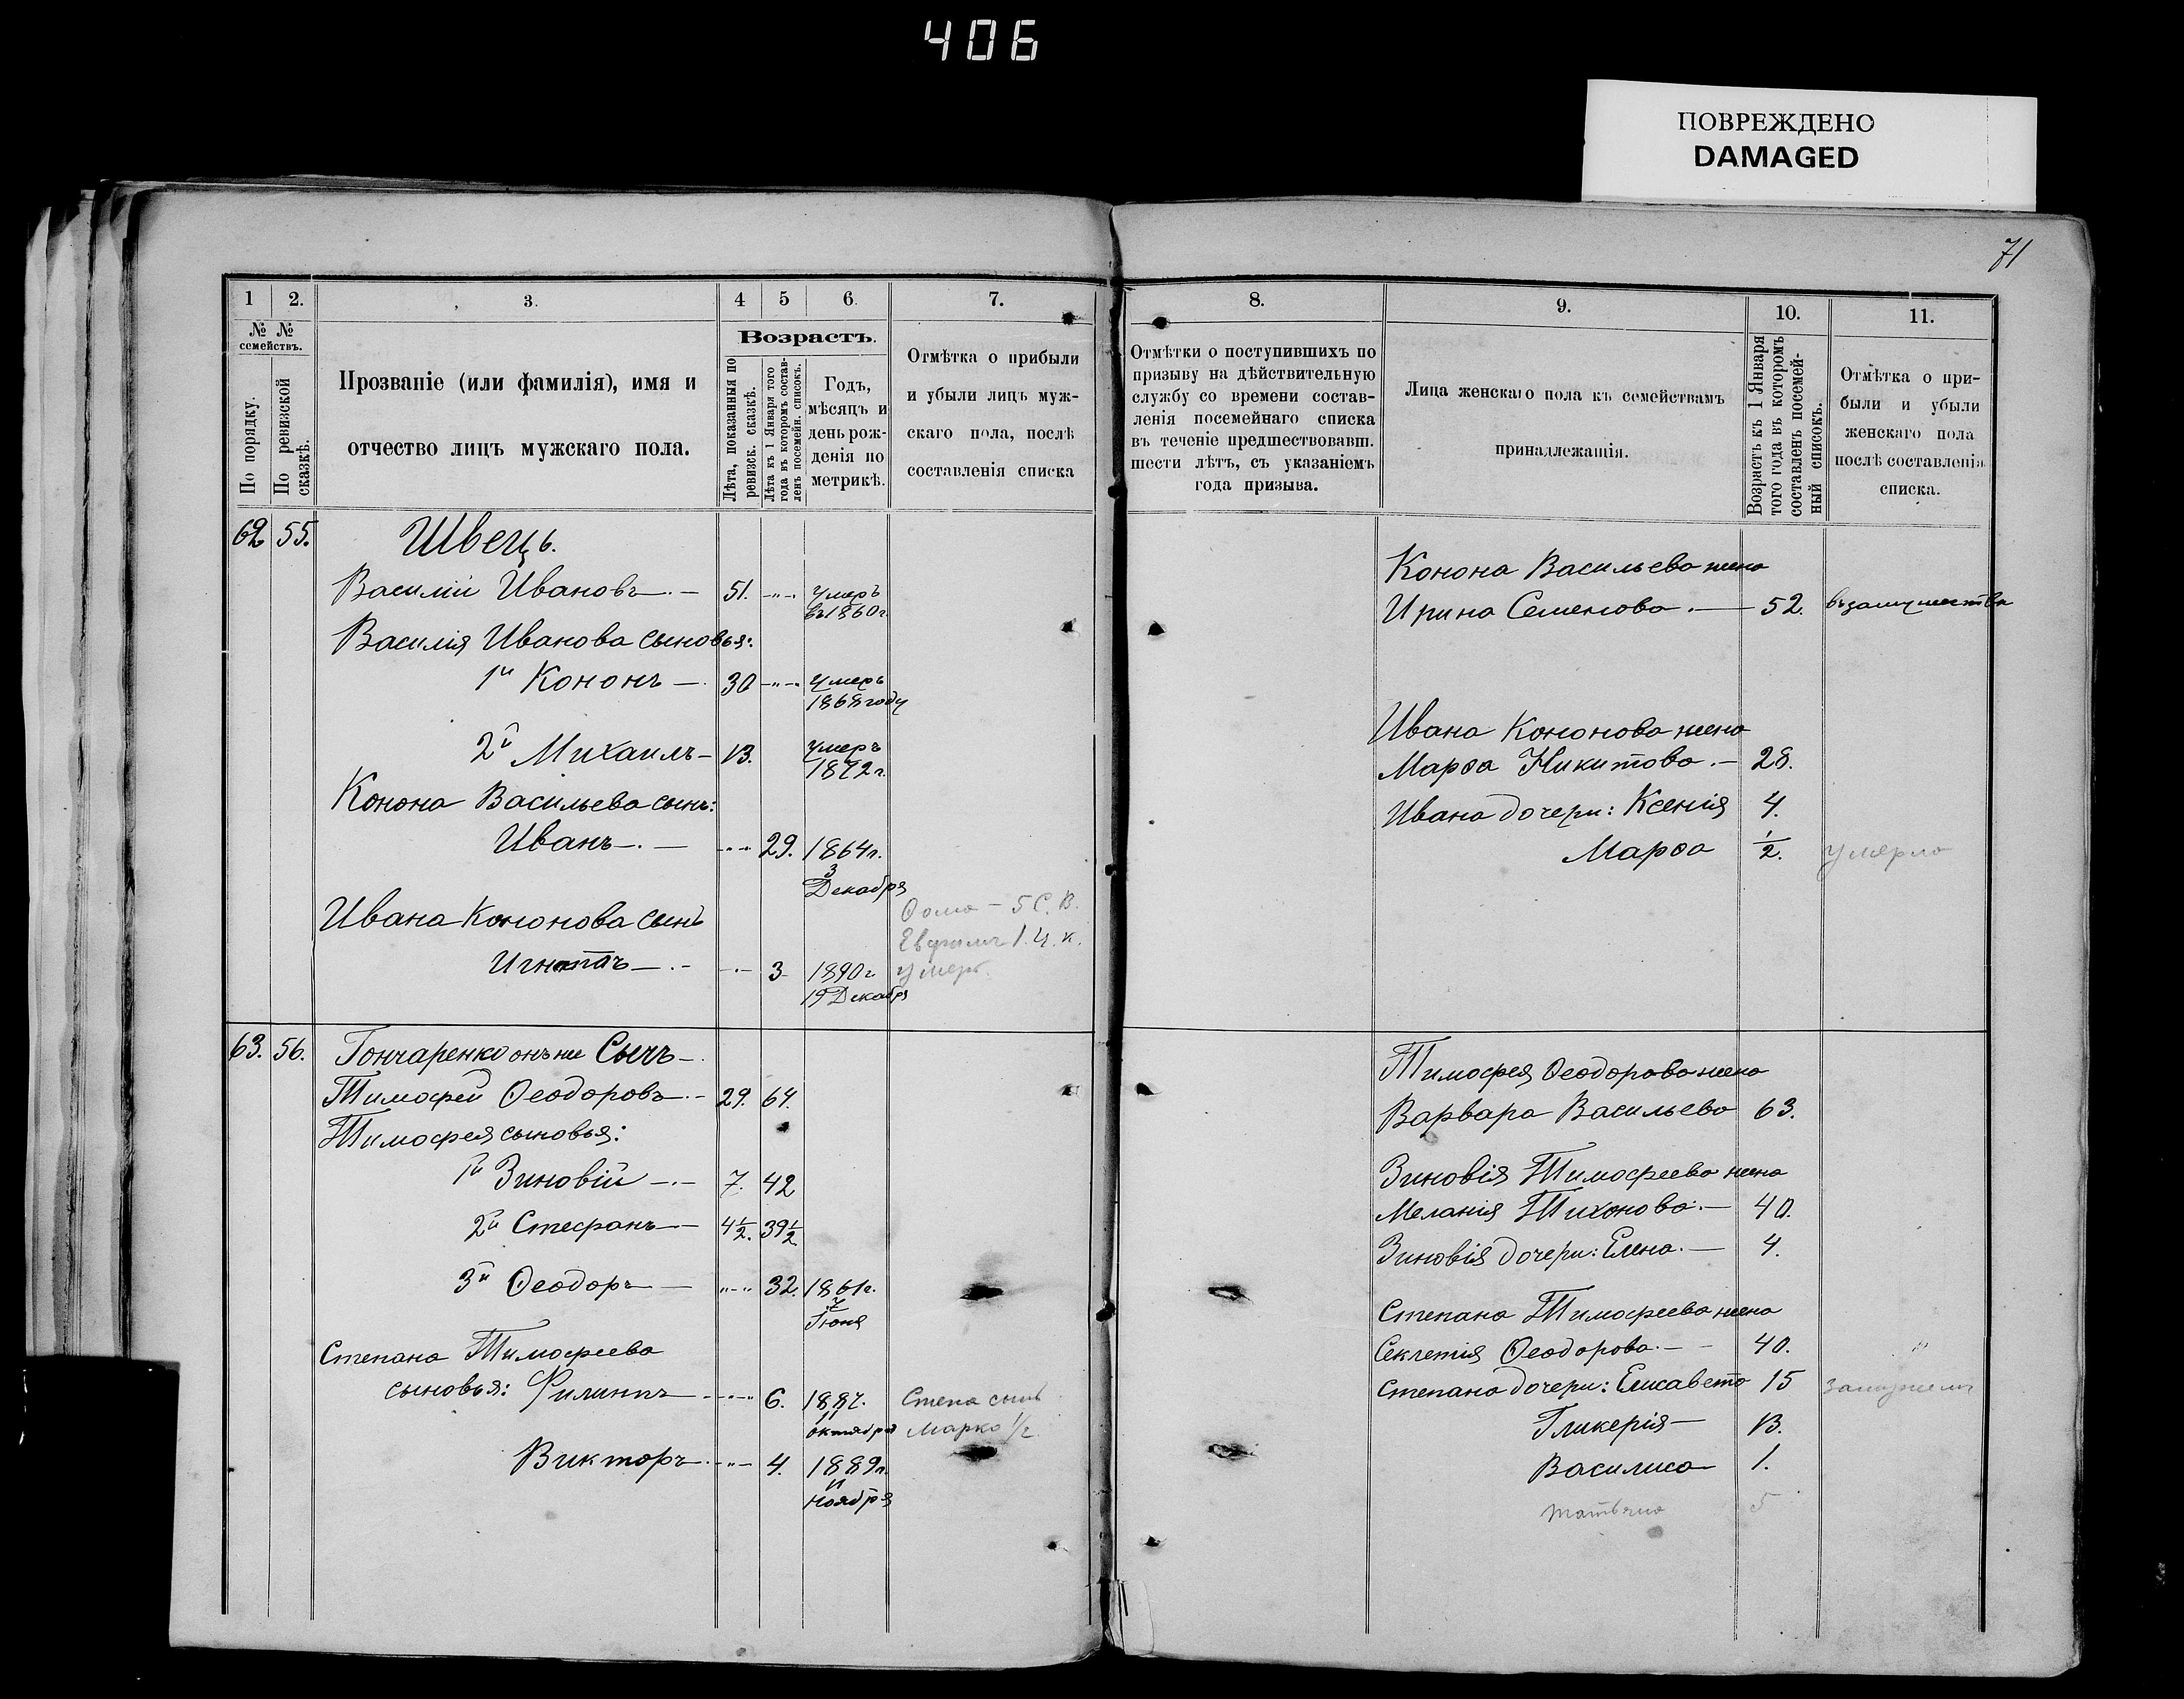 406
ПОВРЕЖДЕНО
DAMAGED
71
1
2.
3.
4
5
6.
7.
8.
9.
10.
11.
№ №
семействъ.
По порядку.
По ревизской
сказкѣ.
Прозваніе (или фамилія), имя и
отчество лицъ мужскаго пола.
Возрастъ.
Лѣта, показанныя по
ревизск. сказкѣ.
Лѣта къ 1 Января того
года въ которомъ состав-
ленъ посемейн. списокъ.
Годъ,
мѣсяцъ и
день рож-
денія по
метрикѣ.
Отмѣтка о прибыли
и убыли лицъ муж-
скаго пола, послѣ
составленія списка
Отмѣтки о поступившихъ по
призыву на дѣйствительную
службу со времени состав-
ленія посемейнаго списка
въ теченіе предшествовавш.
шести лѣтъ, съ указаніемъ
года призыва.
Лица женскаго пола къ семействамъ
принадлежащія.
Возрастъ къ 1 Января
того года въ которомъ
составленъ посемей-
ный списокъ.
Отмѣтка о при-
были и убыли
женскаго пола
послѣ составленія
списка.
62 55. Швецъ.
Василій Ивановъ 51. умеръ
въ 1860 г.
Василія Иванова сыновья:
1й Кононъ 30 умеръ
1868 году
2й Михаилъ 13. умеръ
1872 г.
Конона Васильева сынъ:
Иванъ 29. 1864 г.
3
Декабря
Ивана Кононова сынъ
Игнатъ 3 1890 г. умеръ
19 Декабря
Конона Васильева жена
Ирина Семенова 52. въ замужествѣ
Ивана Кононова жена
Марѳа Никитова 28.
Ивана дочери: Ксенія 4.
Марѳа 1/2. умерла
63. 56. Гончаренко онъ же Сычъ
Тимофей Ѳеодоровъ 29. 64.
Тимофея сыновья:
1й Зиновій 7. 42
2й Стефанъ 4 1/2. 39 1/2
3й Ѳеодоръ 32. 1861 г.
7
Іюня
Степана Тимофеева
сыновья: Филиппъ 6. 1887. Степа сынъ
11
октября Марко 1/2
Викторъ 4. 1889 г.
11
ноября
Тимофея Ѳеодорова жена
Варвара Васильева 63.
Зиновія Тимофеева жена
Меланія Тихонова 40.
Зиновія дочери: Елена 4.
Степана Тимофеева жена
Секлетія Ѳеодорова 40.
Степана дочери: Елисавета 15 замужемъ
Гликерія 13.
Василиса 1.
Татьяна 5